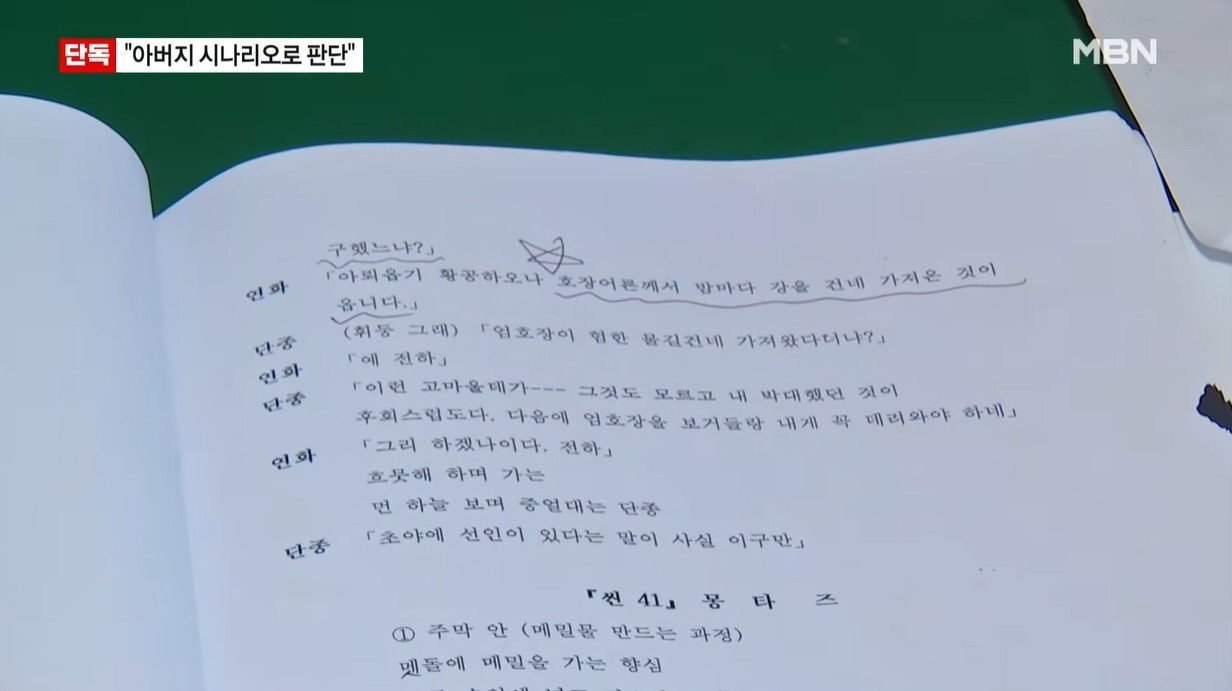 단독 "아버지 시나리오로 판단"
MBN
구했느냐?」
인화 「아뢰옵기 황공하오나 호장어른께서 밤마다 강을 건네 가져온 것이
옵니다.」
단종 (휘둥 그래) 「엄호장이 험한 물길건네 가져왔다더냐?」
인화 「예 전하」
단종 「이런 고마울데가--- 그것도 모르고 내 박대했던 것이
후회스럽도다. 다음에 엄호장을 보거들랑 내게 꼭 데려와야 하네」
인화 「그리 하겠나이다. 전하」
흐뭇해 하며 가는
먼 하늘 보며 중얼대는 단종
단종 「초야에 선인이 있다는 말이 사실 이구만」
『씬 41』 몽 타 즈
① 주막 안 (메밀물 만드는 과정)
멧돌에 메밀을 가는 향심